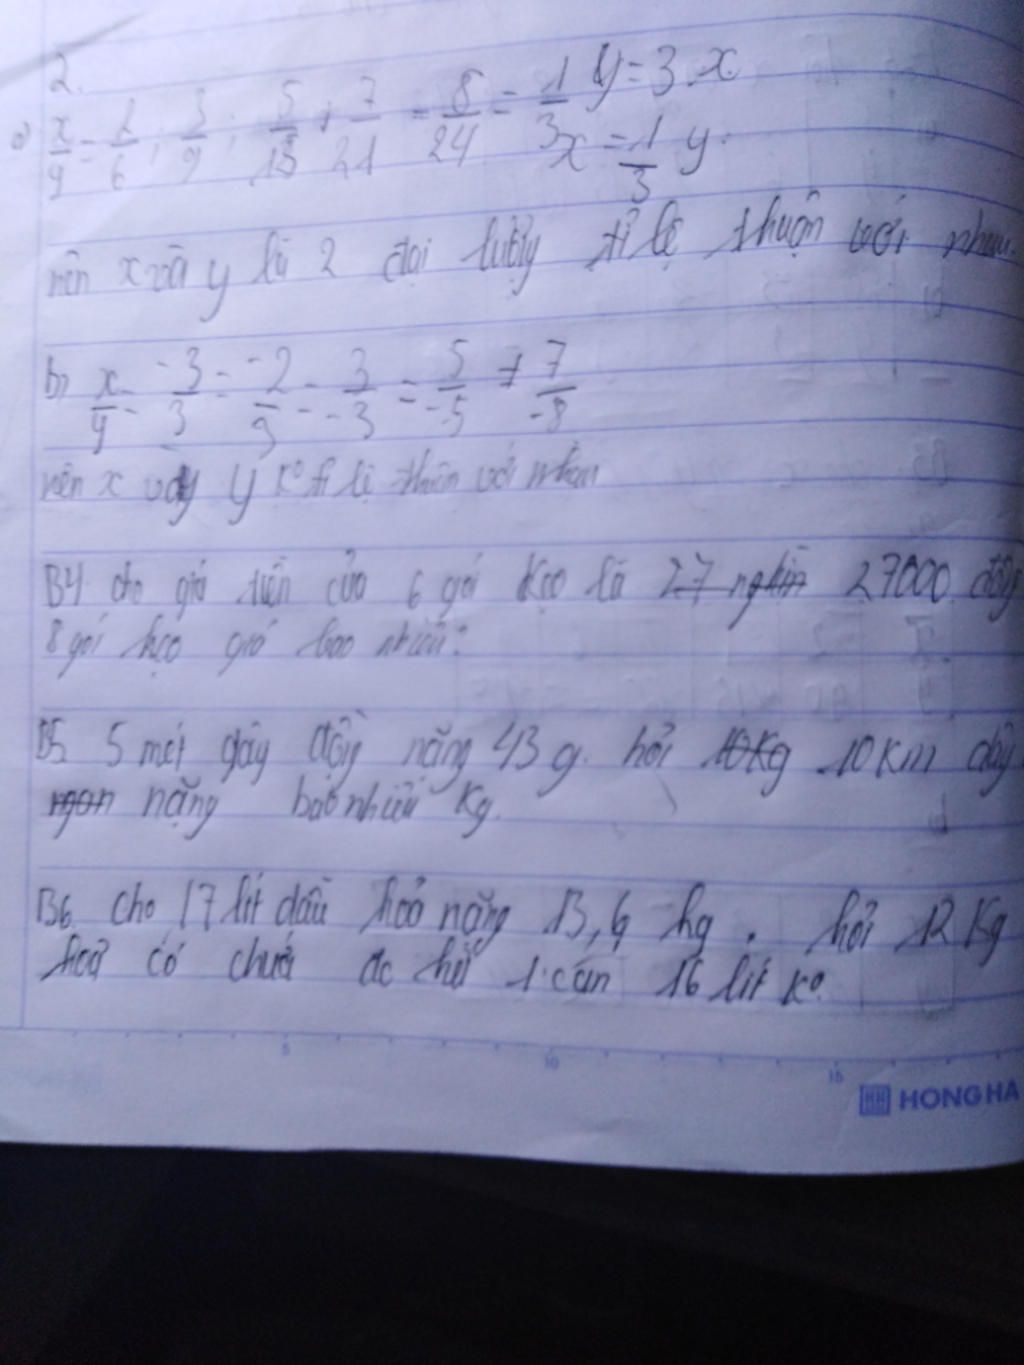 2.
a) x/y = 2/6 ; 3/9 ; 5/15 ; 7/21 = 8/24 = 1/3 y = 3.x
x = 1/3 y.
nên x và y là 2 đại lượng tỉ lệ thuận với nhau.
b) x/y = -3/3 = -2/ = 3/-3 = 5/-5 ≠ 7/-8
nên x và y ko tỉ lệ thuận với nhau
B4 cho giá tiền của 6 gói kẹo là 27 nghìn 27000 đồng
8 gói kẹo giá bao nhiêu?
B5 5 mét dây đồng nặng 43 g. hỏi 10kg 10km dây
nặng bao nhiêu kg.
B6 cho 17 lít dầu hoả nặng 13,6 kg . hỏi 12 kg
hoả có chứa đc hết 1 can 16 lít ko.
5 10 15
HONG HA